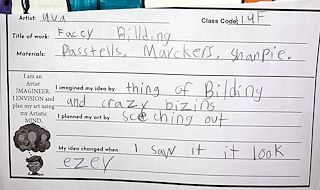 Artist: Ava Class Code: 14F
Title of work: Faccy Billding
Materials: Passtrells, Marckers, shanpie.
I am an
Artist
IMAGINEER
I ENVISION and
plan my art using
my Artistic
MIND.
I imagined my idea by thing of Bilding
and crazy bizins
I planned my art by sceching out
My idea changed when I saw it it look
ezey